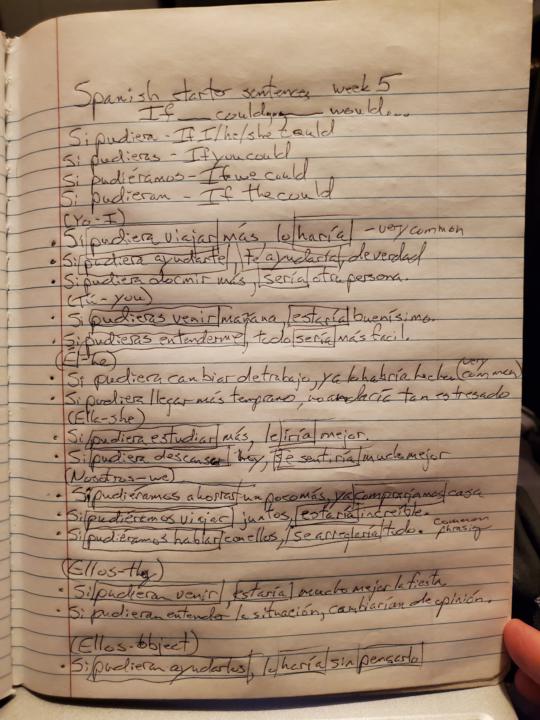 Spanish starter sentences week 5
If ___ could, ___ would...
Si pudiera - If I/he/she could
Si pudieras - If you could
Si pudiéramos - If we could
Si pudieran - If the could
(Yo-I)
• Si pudiera viajar más lo haría - very common
• Si pudiera ayudarte, te ayudaría, de verdad
• Si pudiera dormir más, sería otra persona.
(Tú-you)
• Si pudieras venir mañana, estaría buenísimo.
• Si pudieras entenderme, todo sería más facil.
(El-he)
• Si pudiera cambiar de trabajo, ya lo habría hecho (very common)
• Si pudiera llegar más temprano, no andaría tan estresado
(Ella-she)
• Si pudiera estudiar más, le iría mejor.
• Si pudiera descansar hoy, se sentiría mucho mejor
(Nosotros-we)
• Si pudiéramos ahorrar un poco más, ya compraríamos casa
• Si pudiéramos viajar juntos, estaría increíble.
• Si pudiéramos hablar con ellos, se arreglaría todo. common phrasing
(Ellos-they)
• Si pudieran venir, estaría mucho mejor la fiesta
• Si pudieran entender la situación, cambiarían de opinión.
(Ellos-object)
• Si pudieran ayudarlos, lo haría sin pensarlo